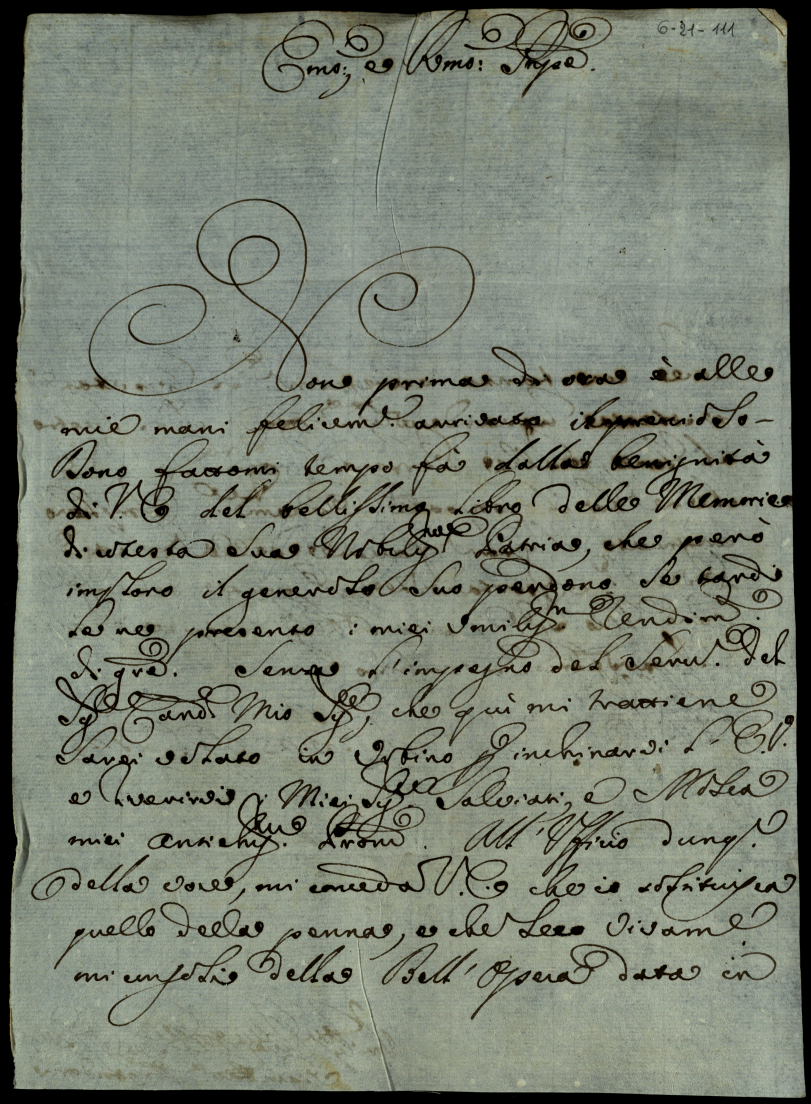 6-21-111
Emo: e Rmo: Prnpe.
Non prima di ora è alle
mie mani felicemte. arrivato il prezioso
Dono fattomi tempo fà dalla benignità
di V E del bellissimo Libro delle Memorie
di cotesta Sua Nobilissma Patria, che però
imploro il generoso Suo perdono se tardi
le ne presento i miei umilissmi Rendimti.
di gre. Senza l'impegno del Serv. del
Sigr Cardl Mio Sigre, che quì mi trattiene
Sarei volato in Urbino p inchinardi l' E.V.
e riverirvi i Miei Sigri Salviati, e Mosca
miei antichissmi Proni. All'Uffizio dunq.
della voce, mi conceda V.E. che io sostituisca
quello della penna, e che Seco vivame
mi consoli della Bell'Opera data in